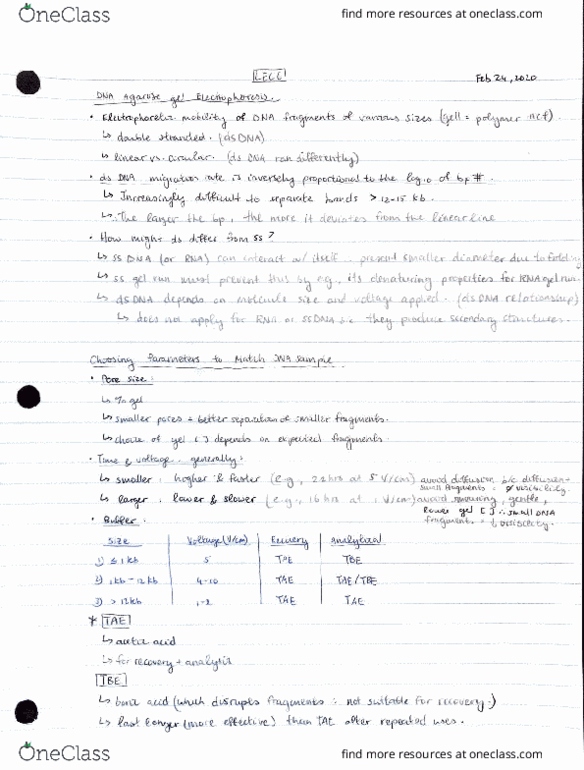 OneClass
find more resources at oneclass.com
LEC6
Feb 24, 2020
DNA Agarose gel Electrophoresis.
• Electrophoretic mobility of DNA fragments of various sizes (gel = polymer net).
↳ double stranded. (dsDNA)
↳ linear vs. circular. (ds DNA ran differently)
• ds DNA migration rate is inversely proportional to the log10 of bp #.
↳ Increasingly difficult to separate bands > 12-15 kb.
↳ ∴ The larger the bp, the more it deviates from the linear line
• How might ds differ from ss?
↳ ss DNA (or RNA) can interact w/ itself .. present smaller diameter due to folding
↳ ss gel run must prevent this by e.g., its denaturing properties for RNA gel run.
↳ dsDNA depends on molecule size and voltage applied. (dsDNA relationship)
↳ does not apply for RNA or ssDNA b/c they produce secondary structures.
Choosing Parameters to Match DNA sample
• Pore size:
↳ % gel
↳ smaller pores + better separation of smaller fragments.
↳ choice of gel [ ] depends on expected fragments.
• Time & voltage. generally:
↳ smaller: higher & faster (e.g., 2 hrs at 5 V/cm) avoid diffusion, b/c diffusion
small fragments = ∅ visibility.
↳ larger: lower & slower (e.g., 16 hrs at 1 V/cm) avoid smearing, gentle,
lower gel [ ] ∴ small DNA
fragment = ↓ visibility.
• Buffer.
Size Voltage (V/cm) Recovery Analytical
1) ≤ 1 kb 5 TAE TBE
2) 1 kb - 12 kb 4-10 TAE TAE/TBE
3) > 12 kb 1-2 TAE TAE
* TAE
↳ acetic acid
↳ for recovery + analytic
TBE
↳ boric acid (which disrupts fragments ∴ not suitable for recovery.)
↳ last longer (more effective) than TAE after repeated uses.
OneClass
find more resources at oneclass.com